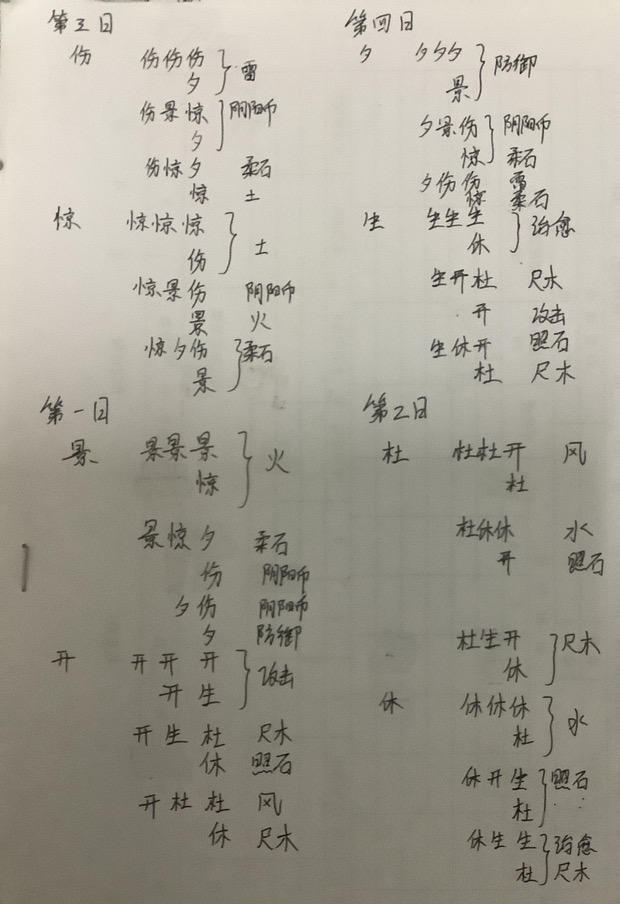 第三日
伤 伤伤伤
夕 } 雷
伤景惊
夕 } 阴阳师
伤惊夕 柔石
惊 土
惊 惊惊惊
伤 } 土
惊景伤 阴阳师
景 火
惊夕伤
景 } 柔石
第四日
夕 夕夕夕
景 } 防御
夕景伤 阴阳师
惊 柔石
夕伤伤 雷
惊 柔石
生 生生生
休 } 治愈
生开杜 尺木
开 攻击
生休开 照石
杜 尺木
第一日
景 景景景
惊 } 火
景惊夕 柔石
伤 阴阳师
夕伤 阴阳师
夕 防御
开 开开开
开生 } 攻击
开生杜 尺木
休 照石
开杜杜 风
休 尺木
第2日
杜 杜杜开 风
杜
杜休休 水
开 照石
杜生开
休 } 尺木
休 休休休
杜 } 水
休开生 照石
杜
休生生 治愈
杜 尺木